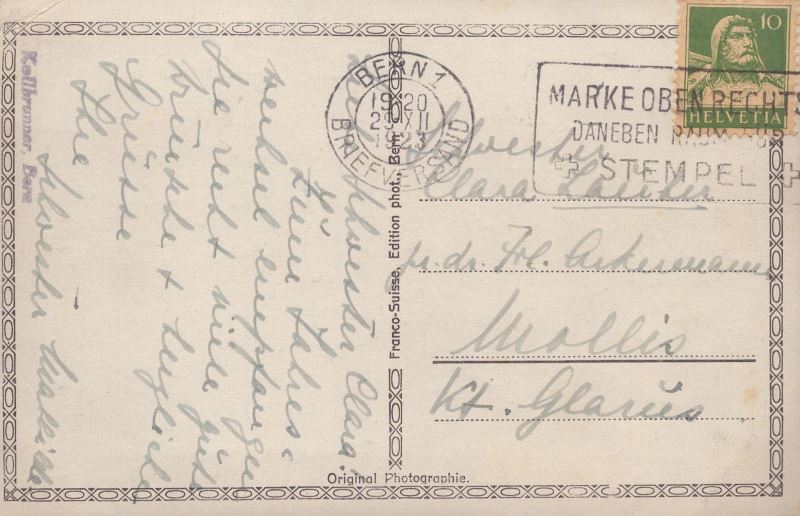 10
HELVETIA
BERN 1
19 20
29 XII
1923
BRIEFVERSAND
MARKE OBEN RECHTS
DANEBEN RAUM FÜR
STEMPEL
Kellbrunner, Bern
Liebe Schwester Clara!
Zum Jahres-
wechsel empfangen
Sie recht viele gute
Wünsche & herzliche
Grüsse
Ihre
Schwester
Franco-Suisse, Edition phot., Bern
Schwester
Clara
Frl. Ackermann,
Mollis
Kt. Glarus
Original Photographie.